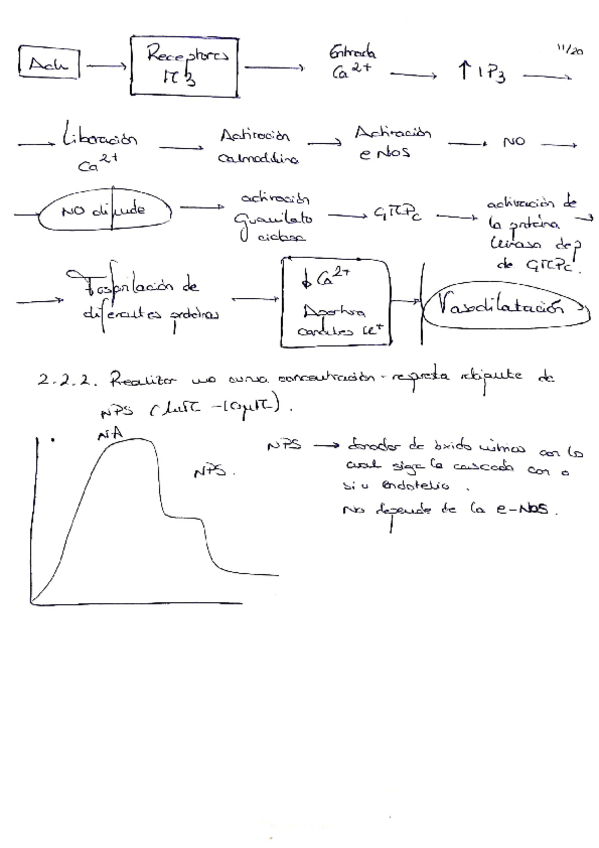 11/20
Ach → Receptores M3 → Entrada Ca2+ → ↑ IP3 →
→ Liberación Ca2+ → Activación calmodulina → Activación eNOS → NO →
→ NO difunde → activación guanilato ciclasa → GMPc → activación de la proteína kinasa dep de GMPc. →
→ Fosforilación de diferentes proteínas → ↓ Ca2+ Apertura canales K+ → Vasodilatación
2.2.2. Realizar una curva concentración-respuesta relajante de
NPS (1nM - 10µM).
NA
NPS.
NPS → donador de óxido nítrico con lo
cual sigue la cascada con o
sin endotelio.
No depende de la e-NOS.